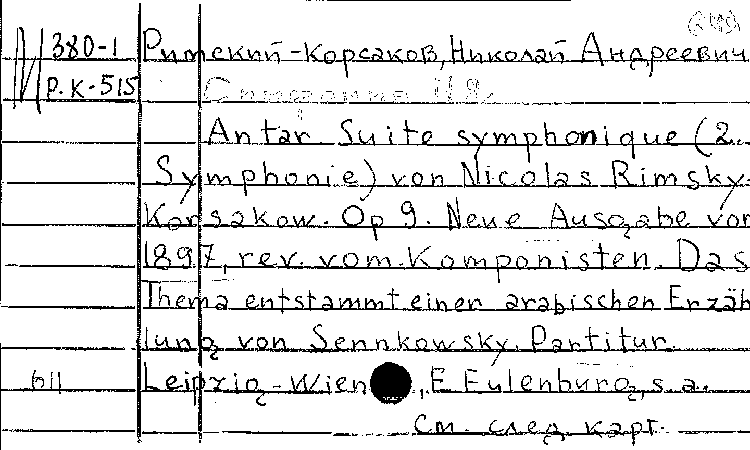 380-1 Римский-Корсаков, Николай Андреевич
Р.К-515 Симфония №2.
Antar. Suite symphonique (2.
Symphonie) von Nicolas Rimsky-
Korsakow. Op 9. Neue Ausgabe von
1897, rev. vom Komponisten. Das
Thema entstammt einer arabischen Erzäh
lung von Sennkowsky. Partitur.
611 Leipzig-Wien, E. Eulenburg, s.a.
См. след. карт.